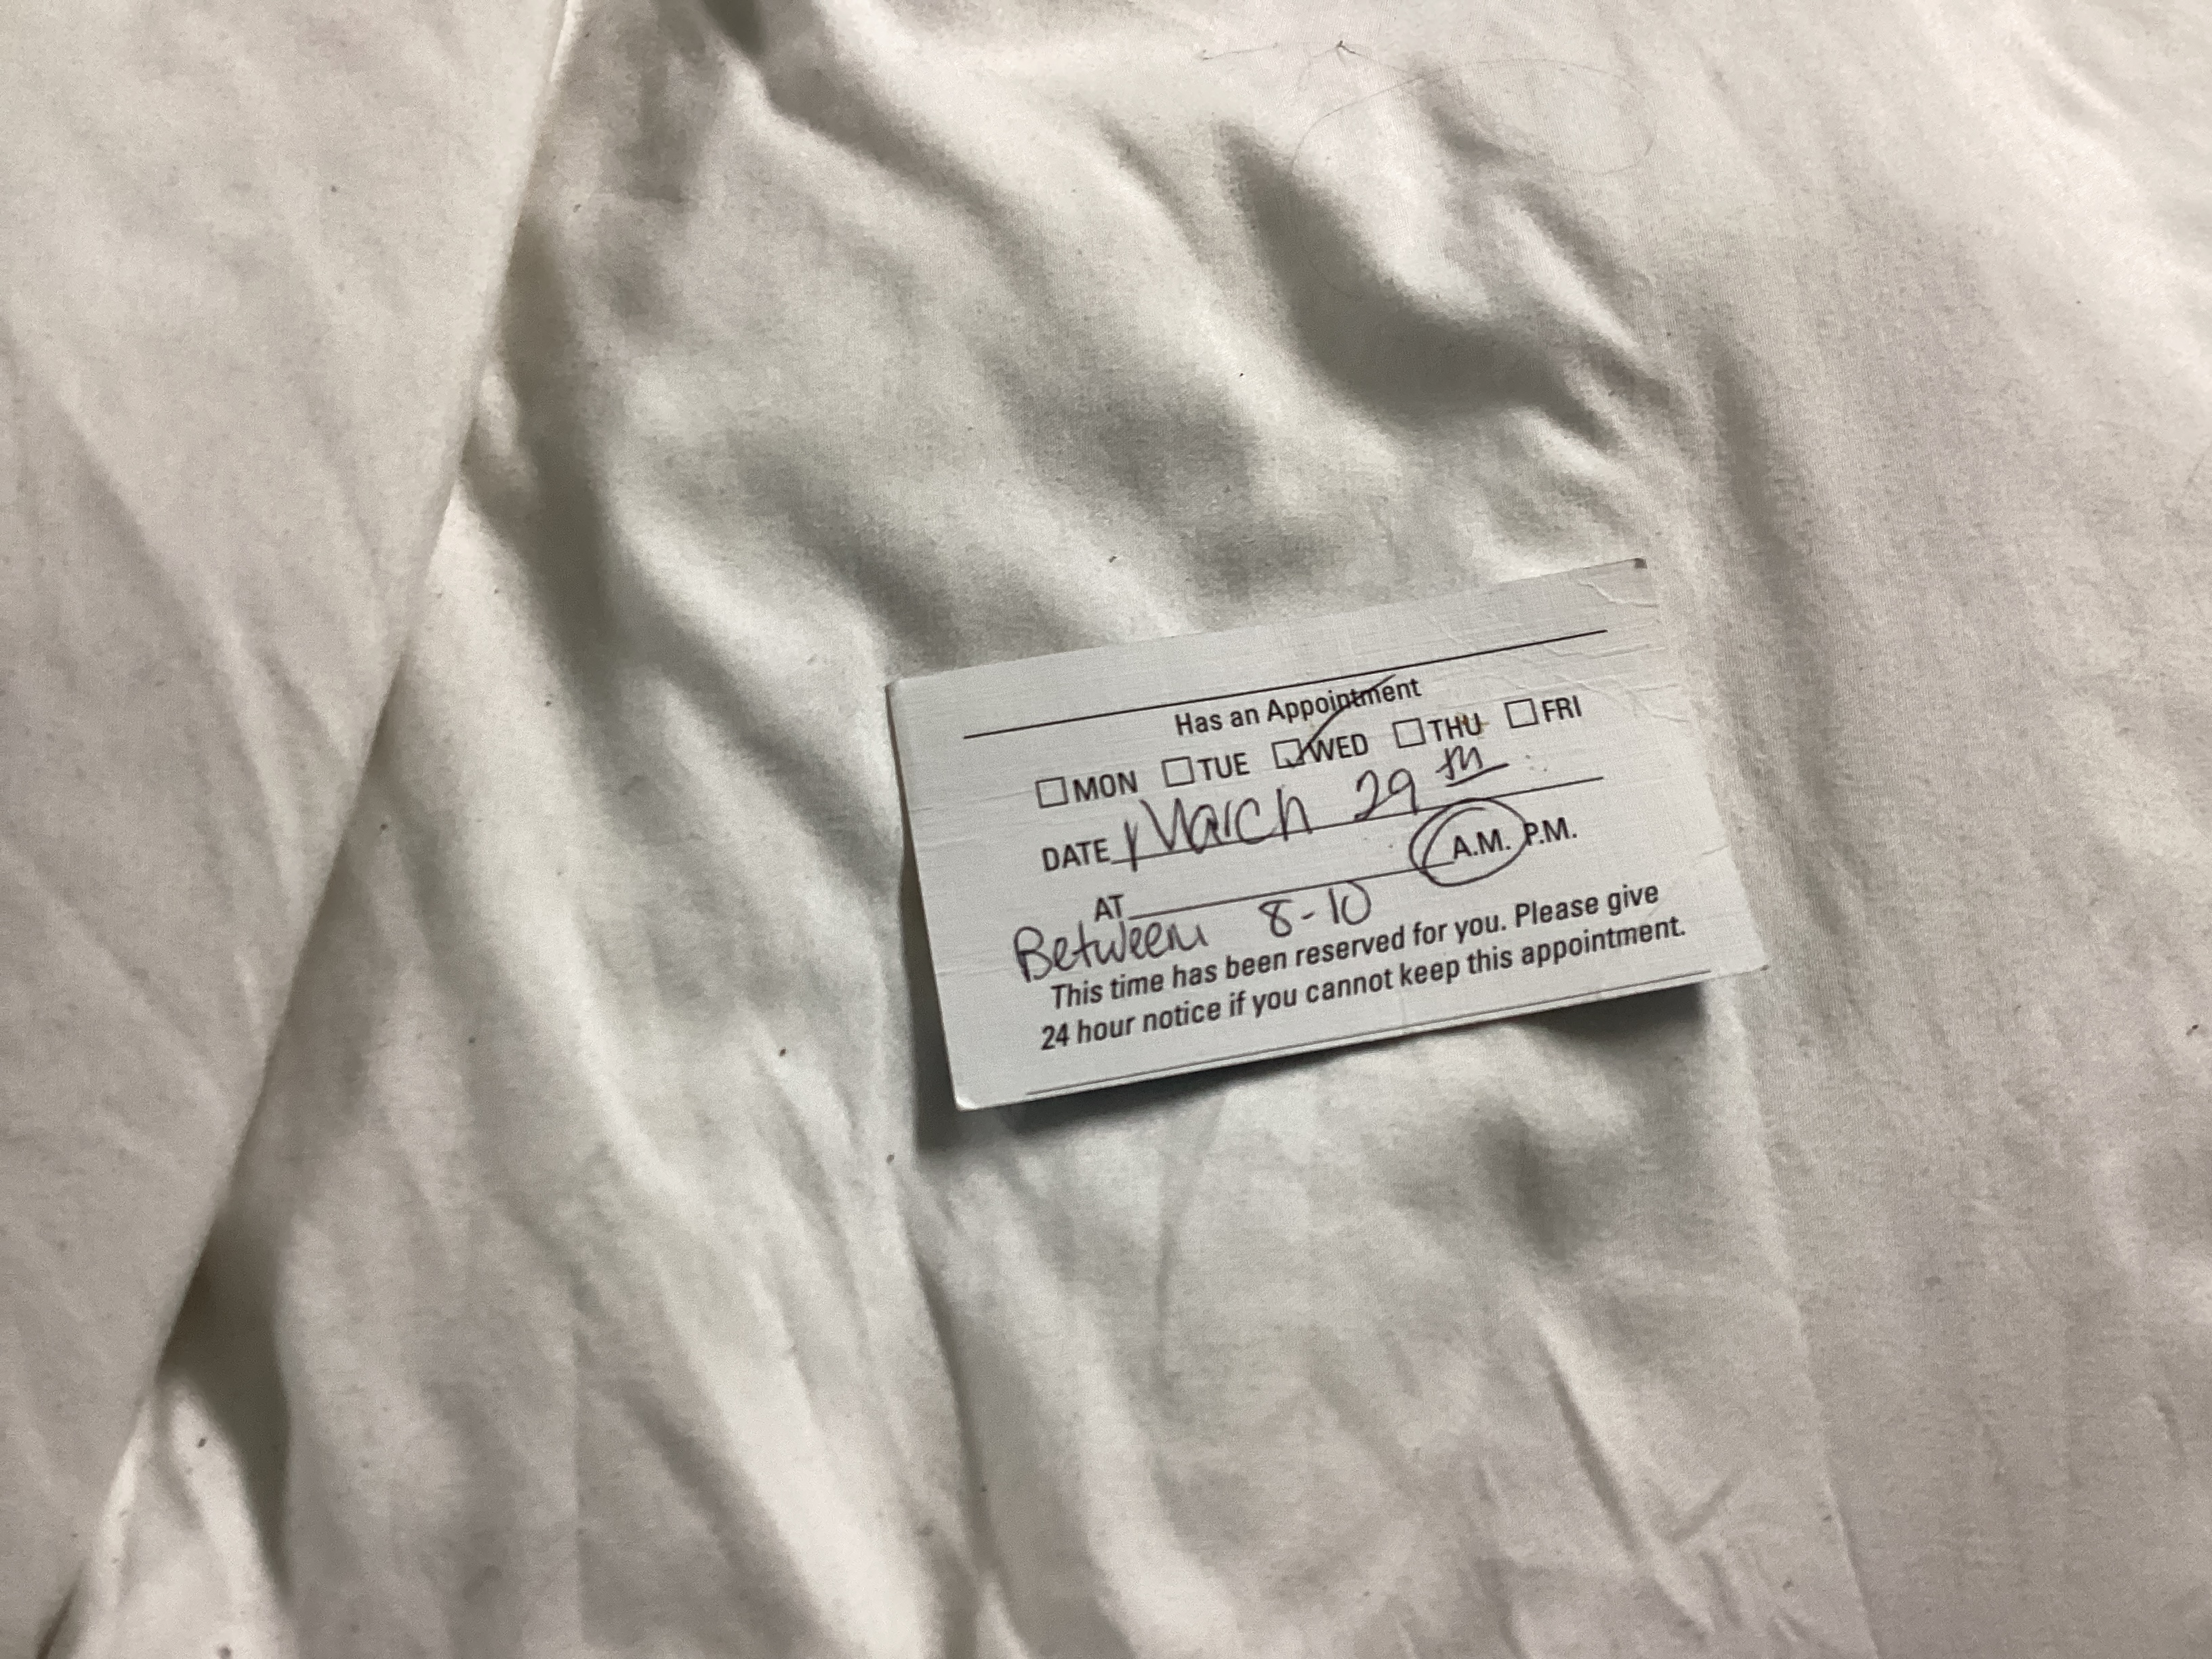 Has an Appointment
MON TUE WED THU FRI
DATE March 29th
AT A.M. P.M.
Between 8-10
This time has been reserved for you. Please give
24 hour notice if you cannot keep this appointment.